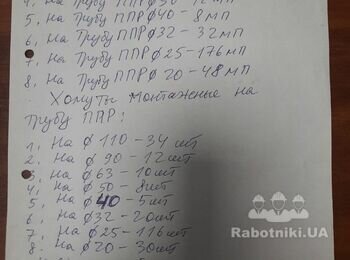 4. На Трубу ППР Ф50 - 12 мп
5. На Трубу ППР Ф40 - 8 мп
6. На Трубу ППР Ф32 - 32 мп
7. На Трубу ППР Ф25 - 176 мп
8. На Трубу ППР Ф20 - 48 мп
Хомуты монтажные на
трубу ППР:
1. На Ф 110 - 34 шт
2. На Ф 90 - 12 шт
3. На Ф 63 - 10 шт
4. На Ф 50 - 8 шт
5. На Ф 40 - 5 шт
6. На Ф 32 - 20 шт
7. На Ф 25 - 116 шт
8. На Ф 20 - 30 шт
Rabotniki.UA